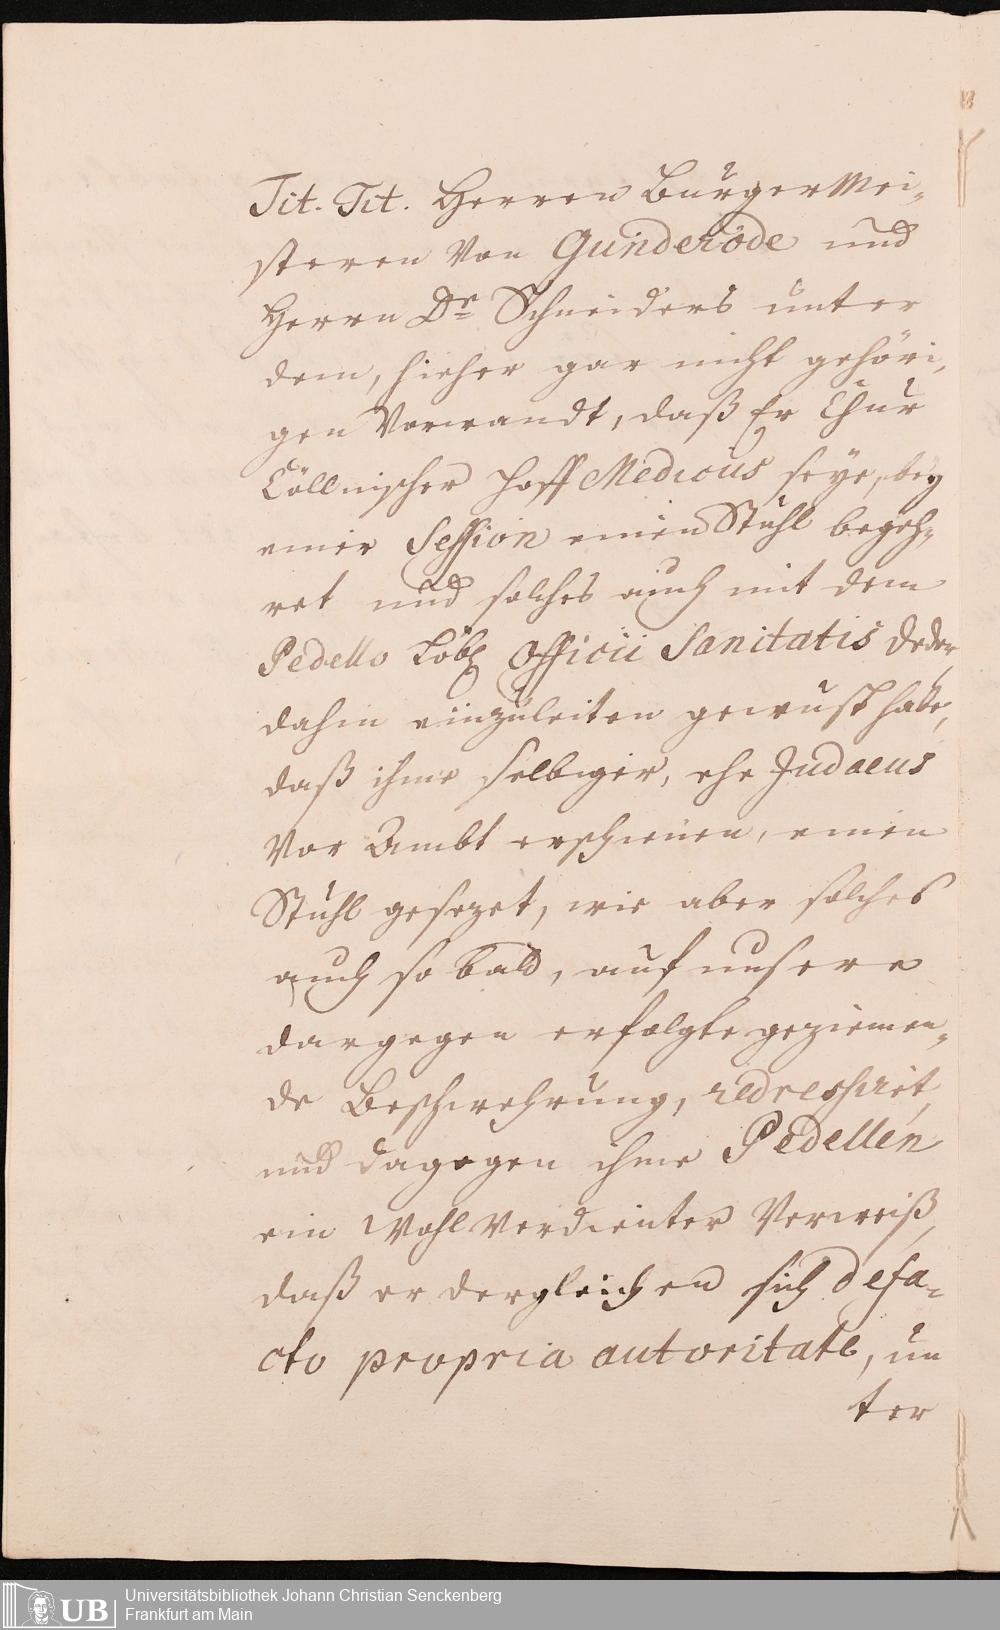 Tit. Tit. Herren BurgerMei-
steren Von Günderöde und
Herrn Dr Schneiders unter
dem, hieher gar nicht gehöri-
gen Vorwandt, daß Er Chur
Cöllnischer Hoff Medicus seye, bey
einer Session einen Stuhl begeh-
ret und solches auch mit dem
Pedello Löbl Officii Sanitatis
dahin einzuleiten gewust habe,
daß ihme selbiger, ehe Judaeus
Vor Ambt erschienen, einen
Stuhl gesezet, wie aber solches
auch so bald, auf unsere
dargegen erfolgte geziemen-
de Beschwehrung, redressiret,
und dagegen ihme Pedellen
ein WohlVerdienter Verweiß,
daß er dergleichen sich defa-
cto propria autoritate, un
ter
UB
Universitätsbibliothek Johann Christian Senckenberg
Frankfurt am Main